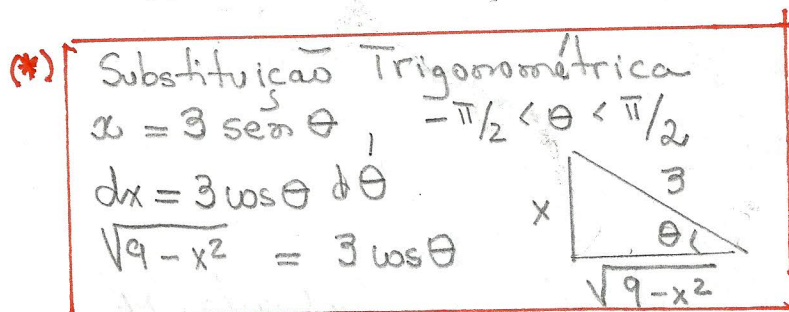 (*) Substituição Trigonométrica
x = 3 sen θ, -π/2 < θ < π/2
dx = 3 cos θ dθ
√9-x² = 3 cos θ
3
x
θ
√9-x²